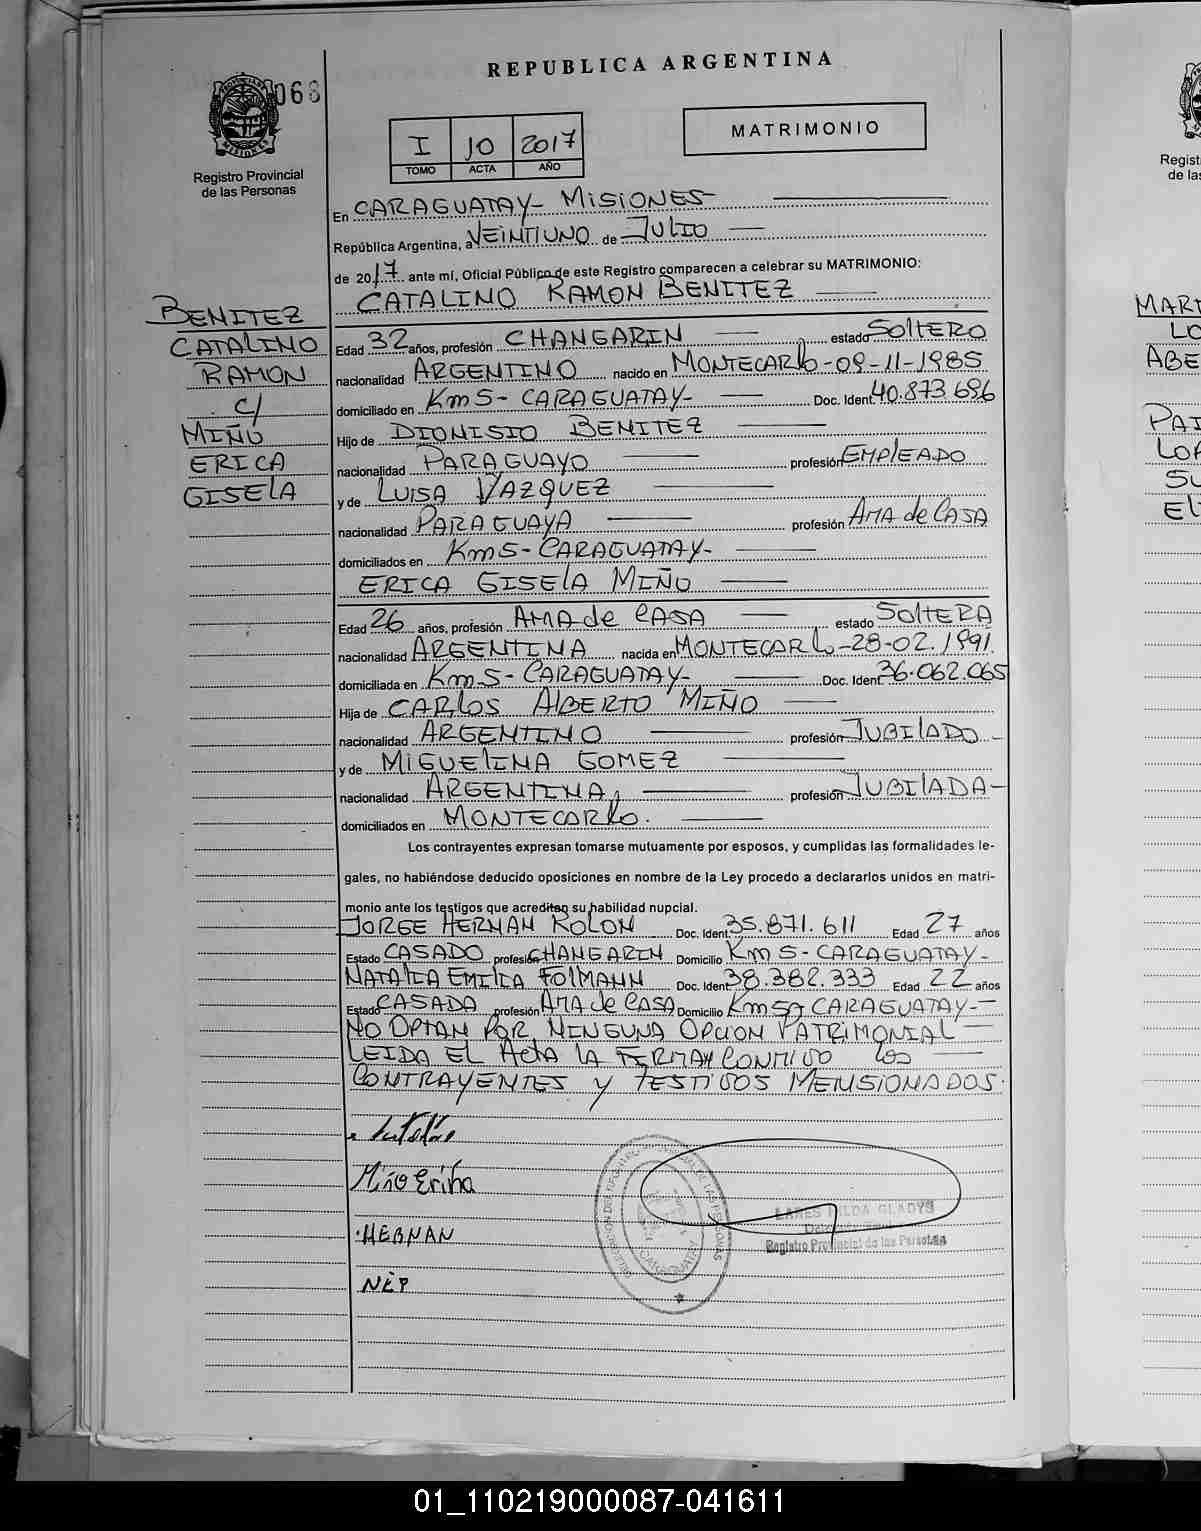 REPUBLICA ARGENTINA
068
PROVINCIA DE
MISIONES
Registro Provincial
de las Personas
I 10 2017
TOMO ACTA AÑO
MATRIMONIO
En CARAGUATAY- MISIONES-
República Argentina, a VEINTIUNO de JULIO
de 2017 ante mí, Oficial Público de este Registro comparecen a celebrar su MATRIMONIO:
CATALINO RAMON BENITEZ
BENITEZ
CATALINO
RAMON
c/
MIÑO
ERICA
GISELA
Edad 32 años, profesión CHANGARIN estado SOLTERO
nacionalidad ARGENTINO nacido en MONTECARLO-09-11-1985
domiciliado en Km 5- CARAGUATAY- Doc. Ident. 40.873.696
Hijo de DIONISIO BENITEZ
nacionalidad PARAGUAYO profesión EMPLEADO
y de LUISA VAZQUEZ
nacionalidad PARAGUAYA profesión AMA de CASA
domiciliados en Km 5- CARAGUATAY-
ERICA GISELA MIÑO
Edad 26 años, profesión AMA de CASA estado SOLTERA
nacionalidad ARGENTINA nacida en MONTECARLO-28-02.1991.
domiciliada en Km 5- CARAGUATAY- Doc. Ident. 36.062.065
Hija de CARLOS ALBERTO MIÑO
nacionalidad ARGENTINO profesión JUBILADO-
y de MIGUELINA GOMEZ
nacionalidad ARGENTINA, profesión JUBILADA-
domiciliados en MONTECARLO.
Los contrayentes expresan tomarse mutuamente por esposos, y cumplidas las formalidades le-
gales, no habiéndose deducido oposiciones en nombre de la Ley procedo a declararlos unidos en matri-
monio ante los testigos que acreditan su habilidad nupcial.
JORGE HERNAN ROLON Doc. Ident. 35.871.611 Edad 27 años
Estado CASADO profesión CHANGARIN Domicilio Km 5- CARAGUATAY-
NATALIA EMILIA FOLMANN Doc. Ident. 38.382.333 Edad 22 años
Estado CASADA profesión AMA de CASA Domicilio Km 5- CARAGUATAY-
NO OPTAN POR NINGUNA OPCION PATRIMONIAL
LEIDA EL ActA LA FIRMAN CONMIGO los
CONTRAYENTES y TESTIGOS MENSIONADOS.
Miño Erika
HERNAN
NEP
CARAGUATAY
LARES HILDA GLADYS
Registro Provincial de las Personas
Registr
de las
MART
LO
ABE
PAI
LOP
SU
EL
01_110219000087-041611